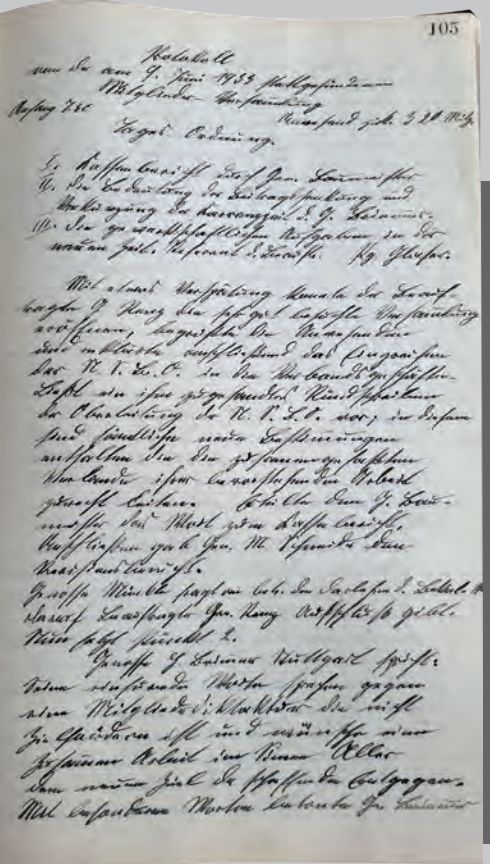 105
Protokoll
von der am 9. Juni 1933 stattgefundenen
Mitglieder-Versammlung
Anfang 7 30 Anwesend zirk. 320 Mitg.
Tages Ordnung.
I. Kassenbericht durch Gen. Baumeister
II. Die Bedeutung der Beitragssenkung und
Verkürzung der Karrenzzeit d. G. Beimer.
III. Die gewerkschaftlichen Aufgaben in der
neuen Zeit. Referent d. Pg. Glaser.
Mit etwas Verspätung konnte der Beauf-
tragte G Renz die sehr gut besuchte Versammlung
eröffnen, begrüßte die Anwesenden
und erklärte anschließend das Eingreifen
der N. S. B. O. in die Verbandsgeschäfte.
Ließt ein ihm zugesandtes Rundschreiben
der Oberleitung der N. S. B. O. vor, in diesem
sind sämtliche neue Bestimmungen
enthalten die den zusammengefaßten
Verbände ihrer bevorstehenden Arbeit
zurecht leiten. Erteilte dem G. Bau-
meister das Wort zum Kassenbericht.
Anschließen gab Gen. M. Schneider den
Revisionsbericht.
Genosse fragt an betr. den Darlehen d.
worauf Beauftragter Gen. Renz Aufschluß gibt.
Nun folgt Punckt 2.
Genosse G Beimer Stuttgart spricht.
Seine Worte sprechen gegen
eine Mitgliederdicktatur die nicht
ist und wünscht eine
zusammen Arbeit im Sinne Aller
dem neuen Ziel der schaffenden entgegen.
Mit besonderen Worten betonte Gen